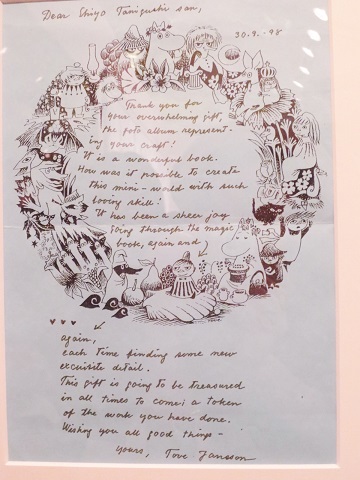 Dear Shiyo Taniguchi san,
30.9.-98
Thank you for
your overwhelming gift,
the foto album represent-
ing your craft!
It is a wonderful book.
How was it possible to create
this mini-world with such
loving skill!
It has been a sheer joy
going through the magic
book, again and
again,
each time finding some new
exquisite detail.
This gift is going to be treasured
in all times to come; a token
of the work you have done.
Wishing you all good things-
yours, Tove Jansson